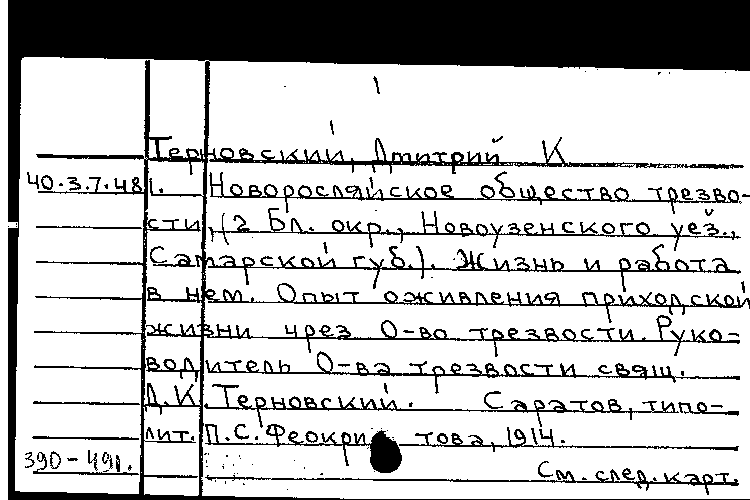 Терновский, Дмитрий К
40.3.7.48 1. Новоросляйское общество трезво-
сти, (2 Бл. окр., Новоузенского уез.,
Самарской губ.). Жизнь и работа
в нем. Опыт оживления приходской
жизни чрез О-во трезвости. Руко-
водитель О-ва трезвости свящ.
Д.К. Терновский. Саратов, типо-
лит. П.С. Феокритова, 1914.
390-491. См. след. карт.